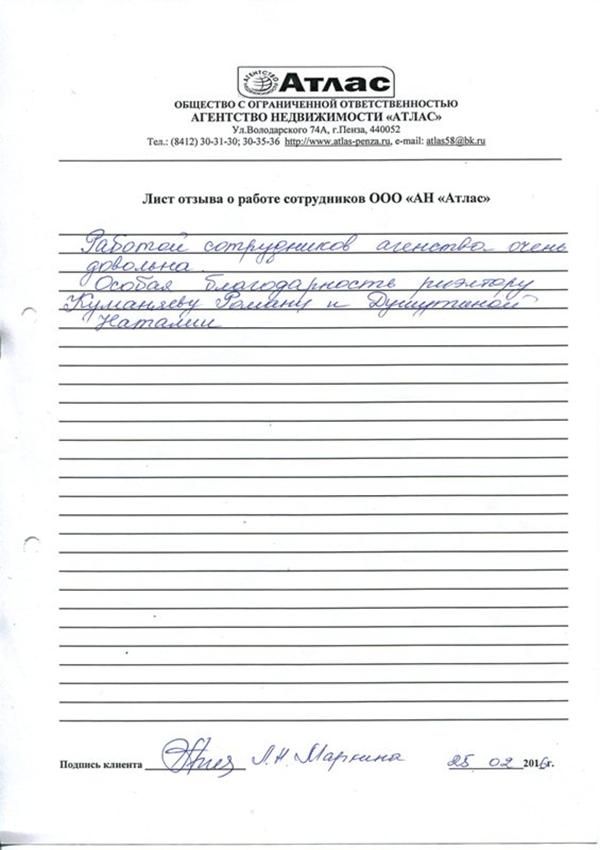 АГЕНТСТВО
Атлас
ОБЩЕСТВО С ОГРАНИЧЕННОЙ ОТВЕТСТВЕННОСТЬЮ
АГЕНТСТВО НЕДВИЖИМОСТИ «АТЛАС»
Ул.Володарского 74А, г.Пенза, 440052
Тел.: (8412) 30-31-30; 30-35-36 http://www.atlas-penza.ru, e-mail: atlas58@bk.ru
Лист отзыва о работе сотрудников ООО «АН «Атлас»
Работой сотрудников агенства очень
довольна.
Особая благодарность риэлтору
Куманяеву Роману и
Наталии
Подпись клиента Л.Н. Маркина 25 02 2016г.